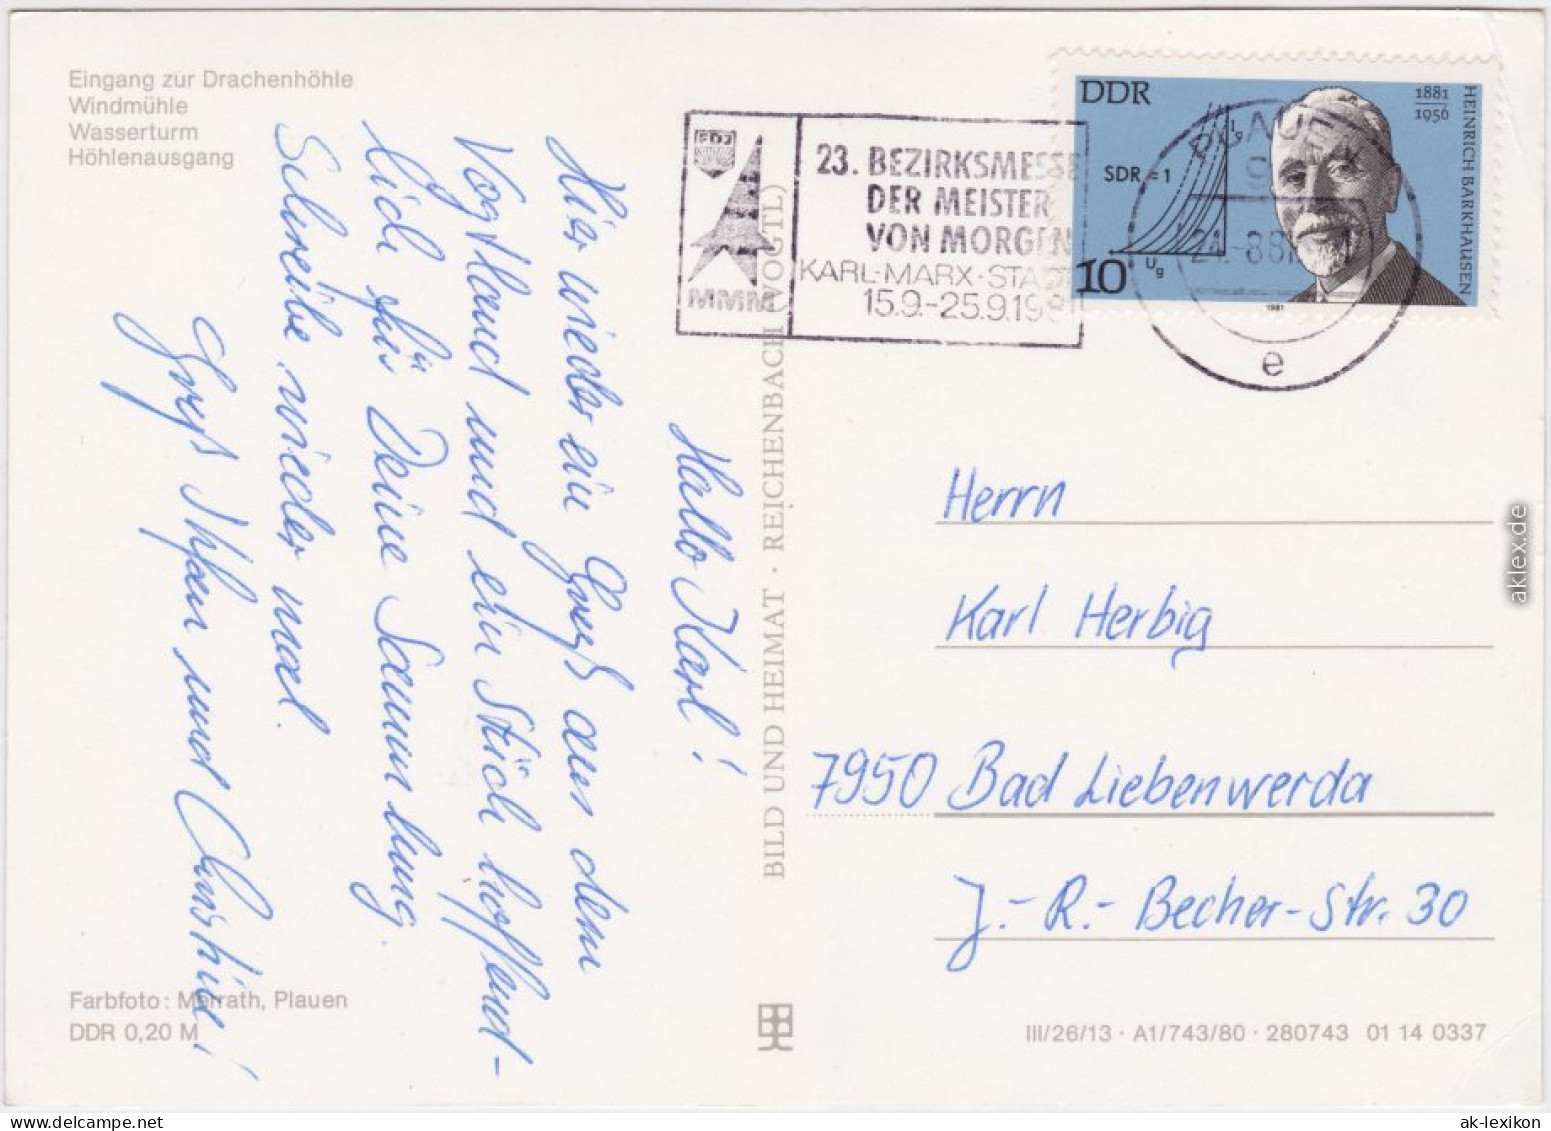 Eingang zur Drachenhöhle
Windmühle
Wasserturm
Höhlenausgang
Hallo Karl!
Hier wieder ein Gruß aus dem
Vogtland und ein Stück hoffent-
lich für Deine Sammlung.
Schreibe wieder mal.
Gruß und Christine!
Farbfoto: Meirath, Plauen
DDR 0,20 M
BILD UND HEIMAT · REICHENBACH (VOGTL)
FDJ
MMM
23. BEZIRKSMESSE
DER MEISTER
VON MORGEN
KARL-MARX-STADT
15.9.-25.9.198
DDR
1881
1956
HEINRICH BARKHAUSEN
SDR = 1
Ig
Ug
10
1981
PLAUEN
9
e
Herrn
Karl Herbig
7950 Bad Liebenwerda
J.-R.-Becher-Str. 30
III/26/13 · A1/743/80 · 280743 01 14 0337
aklex.de
ak-lexikon